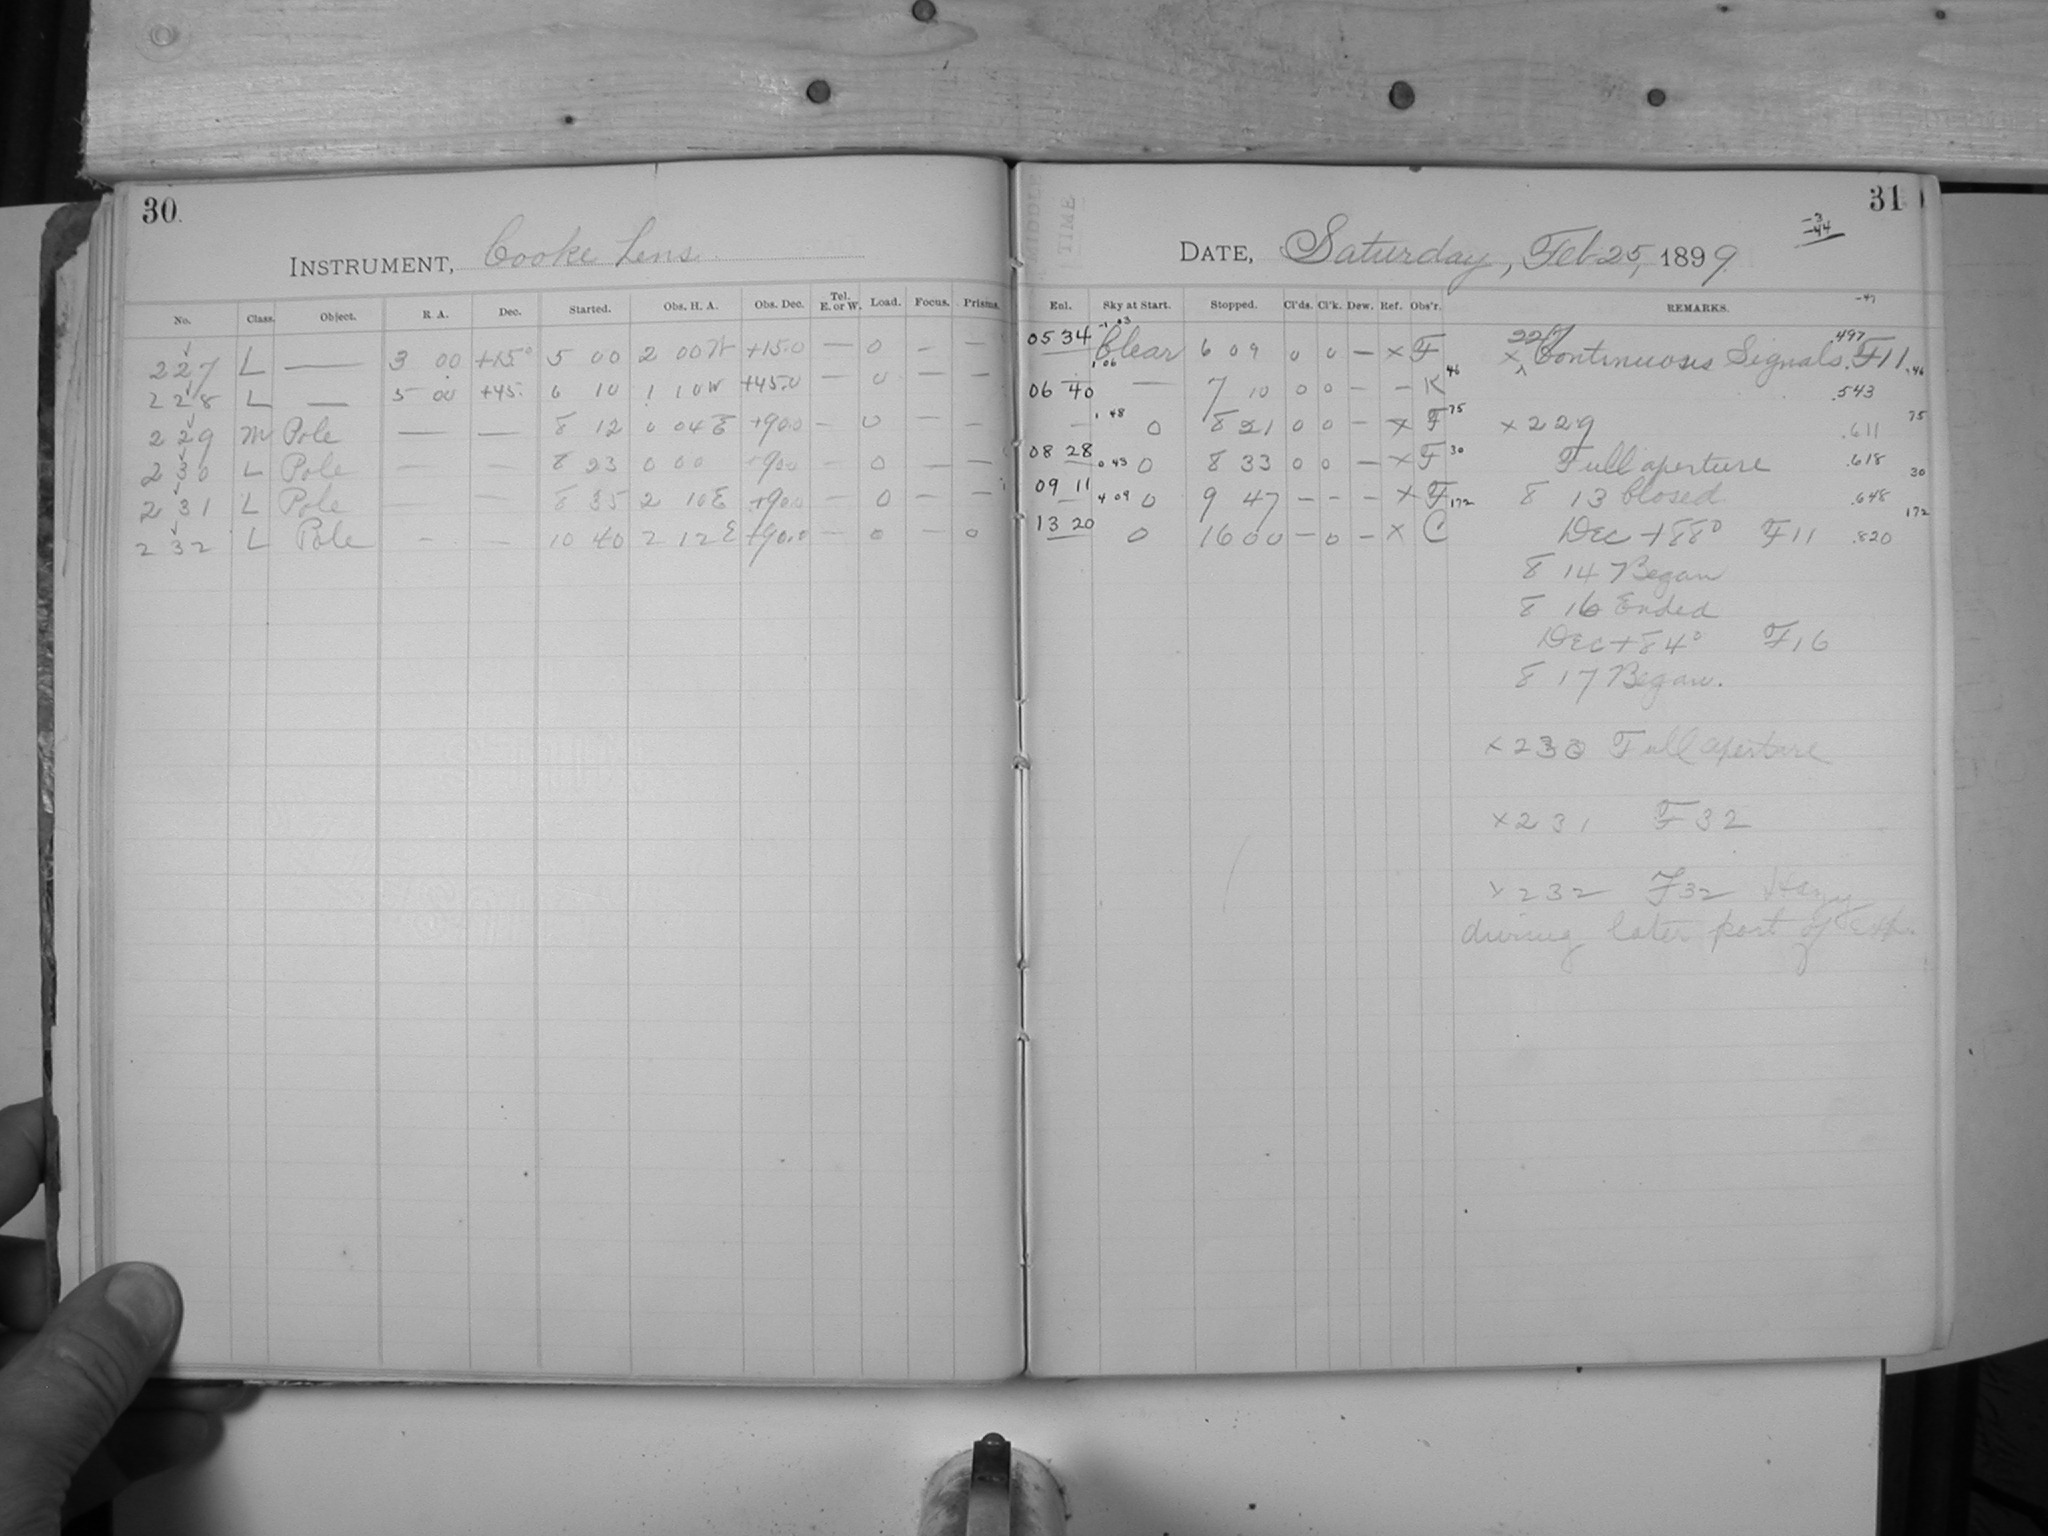 30.
INSTRUMENT, Cooke Lens
No. Class. Object. R A. Dec. Started. Obs. H. A. Obs. Dec. Tel. E. or W. Load. Focus. Prisms.
227 L — 3 00 +15° 5 00 2 00 W +15.0 — 0 — —
228 L — 5 00 +45. 6 10 1 10 W +45.0 — 0 — —
229 M Pole — — 8 12 0 04 E +90.0 — 0 — —
230 L Pole — — 8 23 0 00 +90.0 — 0 — —
231 L Pole — — 8 35 2 10 E +90.0 — 0 — —
232 L Pole - - 10 40 2 12 E +90.0 — 0 — 0
31
-3
-44
DATE, Saturday, Feb 25, 1899.
Enl. Sky at Start. Stopped. Cl'ds. Cl'k. Dew. Ref. Obs'r. REMARKS. -47
05 34 -1 03 Clear 6 09 0 0 — × F 227 × Continuous Signals. F11 .497 .46
06 40 1 06 — 7 10 0 0 — - K 46 .543
— 1 48 0 8 21 0 0 — × F 75 × 229 .611 75
08 28 0 43 0 8 33 0 0 — × F 30 Full aperture .618 30
09 11 4 09 0 9 47 — — — × F 172 8 13 Closed .648 172
13 20 0 16 00 — 0 — × C Dec +88° F11 .820
8 14 Began
8 16 Ended
Dec +84° F16
8 17 Began.
×230 Full aperture
×231 F32
×232 F32 Hazy
during later part of exp.